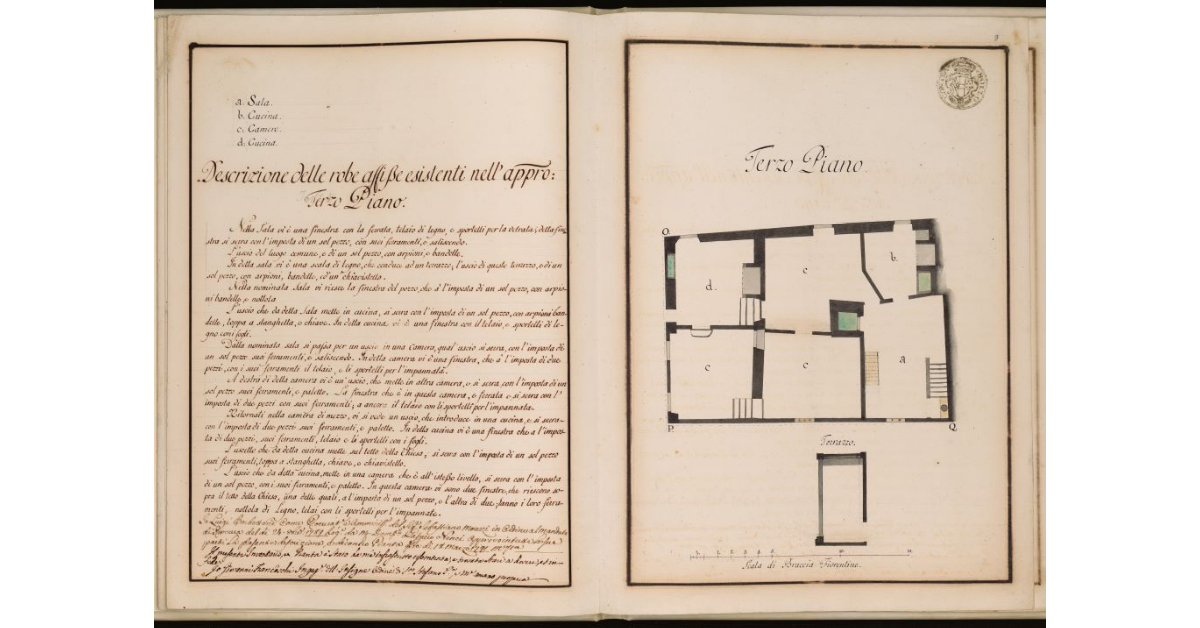 a. Sala.
b. Cucina.
c. Camere.
d. Cucina.
Descrizione delle robe affisse esistenti nell'appro:
Terzo Piano:
Nella Sala vi è una finestra con la ferrata, telaio di legno, e sportelli per la vetrata; della fine
stra si serra con l'imposta di un sol pezzo, con suoi ferramenti, e saliscendo.
L'uscio del luogo comune, è di un sol pezzo, con arpioni, e bandelle.
In detta sala vi è una scala di legno, che conduce ad un terrazzo, l'uscio di questo terrazzo, è di un
sol pezzo, con arpioni, bandelle, ed un chiavistello.
Nella nominata Sala vi riesce la finestra del pozzo, che à l'imposta di un sol pezzo, con arpio
ni bandelle, e nottola
L'uscio che da detta Sala mette in cucina, si serra con l'imposta di un sol pezzo, con arpioni ban
delle, toppa a stanghetta, e chiave. In detta cucina vi è una finestra con il telaio, e sportelli di le
gno con i fogli.
Dalla nominata sala si passa per un uscio in una Camera, qual'uscio si serra, con l'imposta di
un sol pezzo suoi ferramenti, e saliscendo. In detta camera vi è una finestra, che à l'imposta di due
pezzi, con i suoi ferramenti il telaio, e li sportelli per l'impannata.
A destra di detta camera vi è un'uscio, che mette in altra camera, e si serra, con l'imposta di un
sol pezzo suoi ferramenti, e paletto. La finestra che è in questa camera, è ferrata, e si serra con l'
imposta di due pezzi con suoi ferramenti; a ancora il telaio con li sportelli per l'impannata.
Ritornati nella camera di mezzo, vi si vede un uscio, che introduce in una cucina, e si serra
con l'imposta di due pezzi suoi ferramenti, e paletto. In detta cucina vi è una finestra che a l'impos
ta di due pezzi, suoi ferramenti, telaio e li sportelli con i fogli.
L'uscetto che da detta cucina mette sul tetto della Chiesa, si serra con l'imposta di un sol pezzo
suoi ferramenti, toppa a stanghetta, chiave, e chiavistello.
L'uscio che da detta cucina, mette in una camera che è all'istesso livello, si serra con l'imposta
di un sol pezzo, con i suoi ferramenti, e paletto. In questa camera vi sono due finestre, che riescono so
pra il tetto della Chiesa, una delle quali, a l'imposta di un sol pezzo, e l'altra di due, anno i loro ferra
menti, nottola di legno, telai con li sportelli per l'impannate.
Io Luigi
Io Giovanni Franceschi Ingeg.re mano propria
9
Terzo Piano.
O.
d.
c
b.
c
c
a
P.
Q.
Terrazzo.
Scala di Braccia Fiorentine.